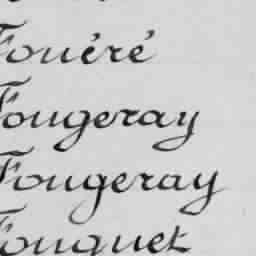 Fouéré
Fougeray
Fougeray
Fouquet